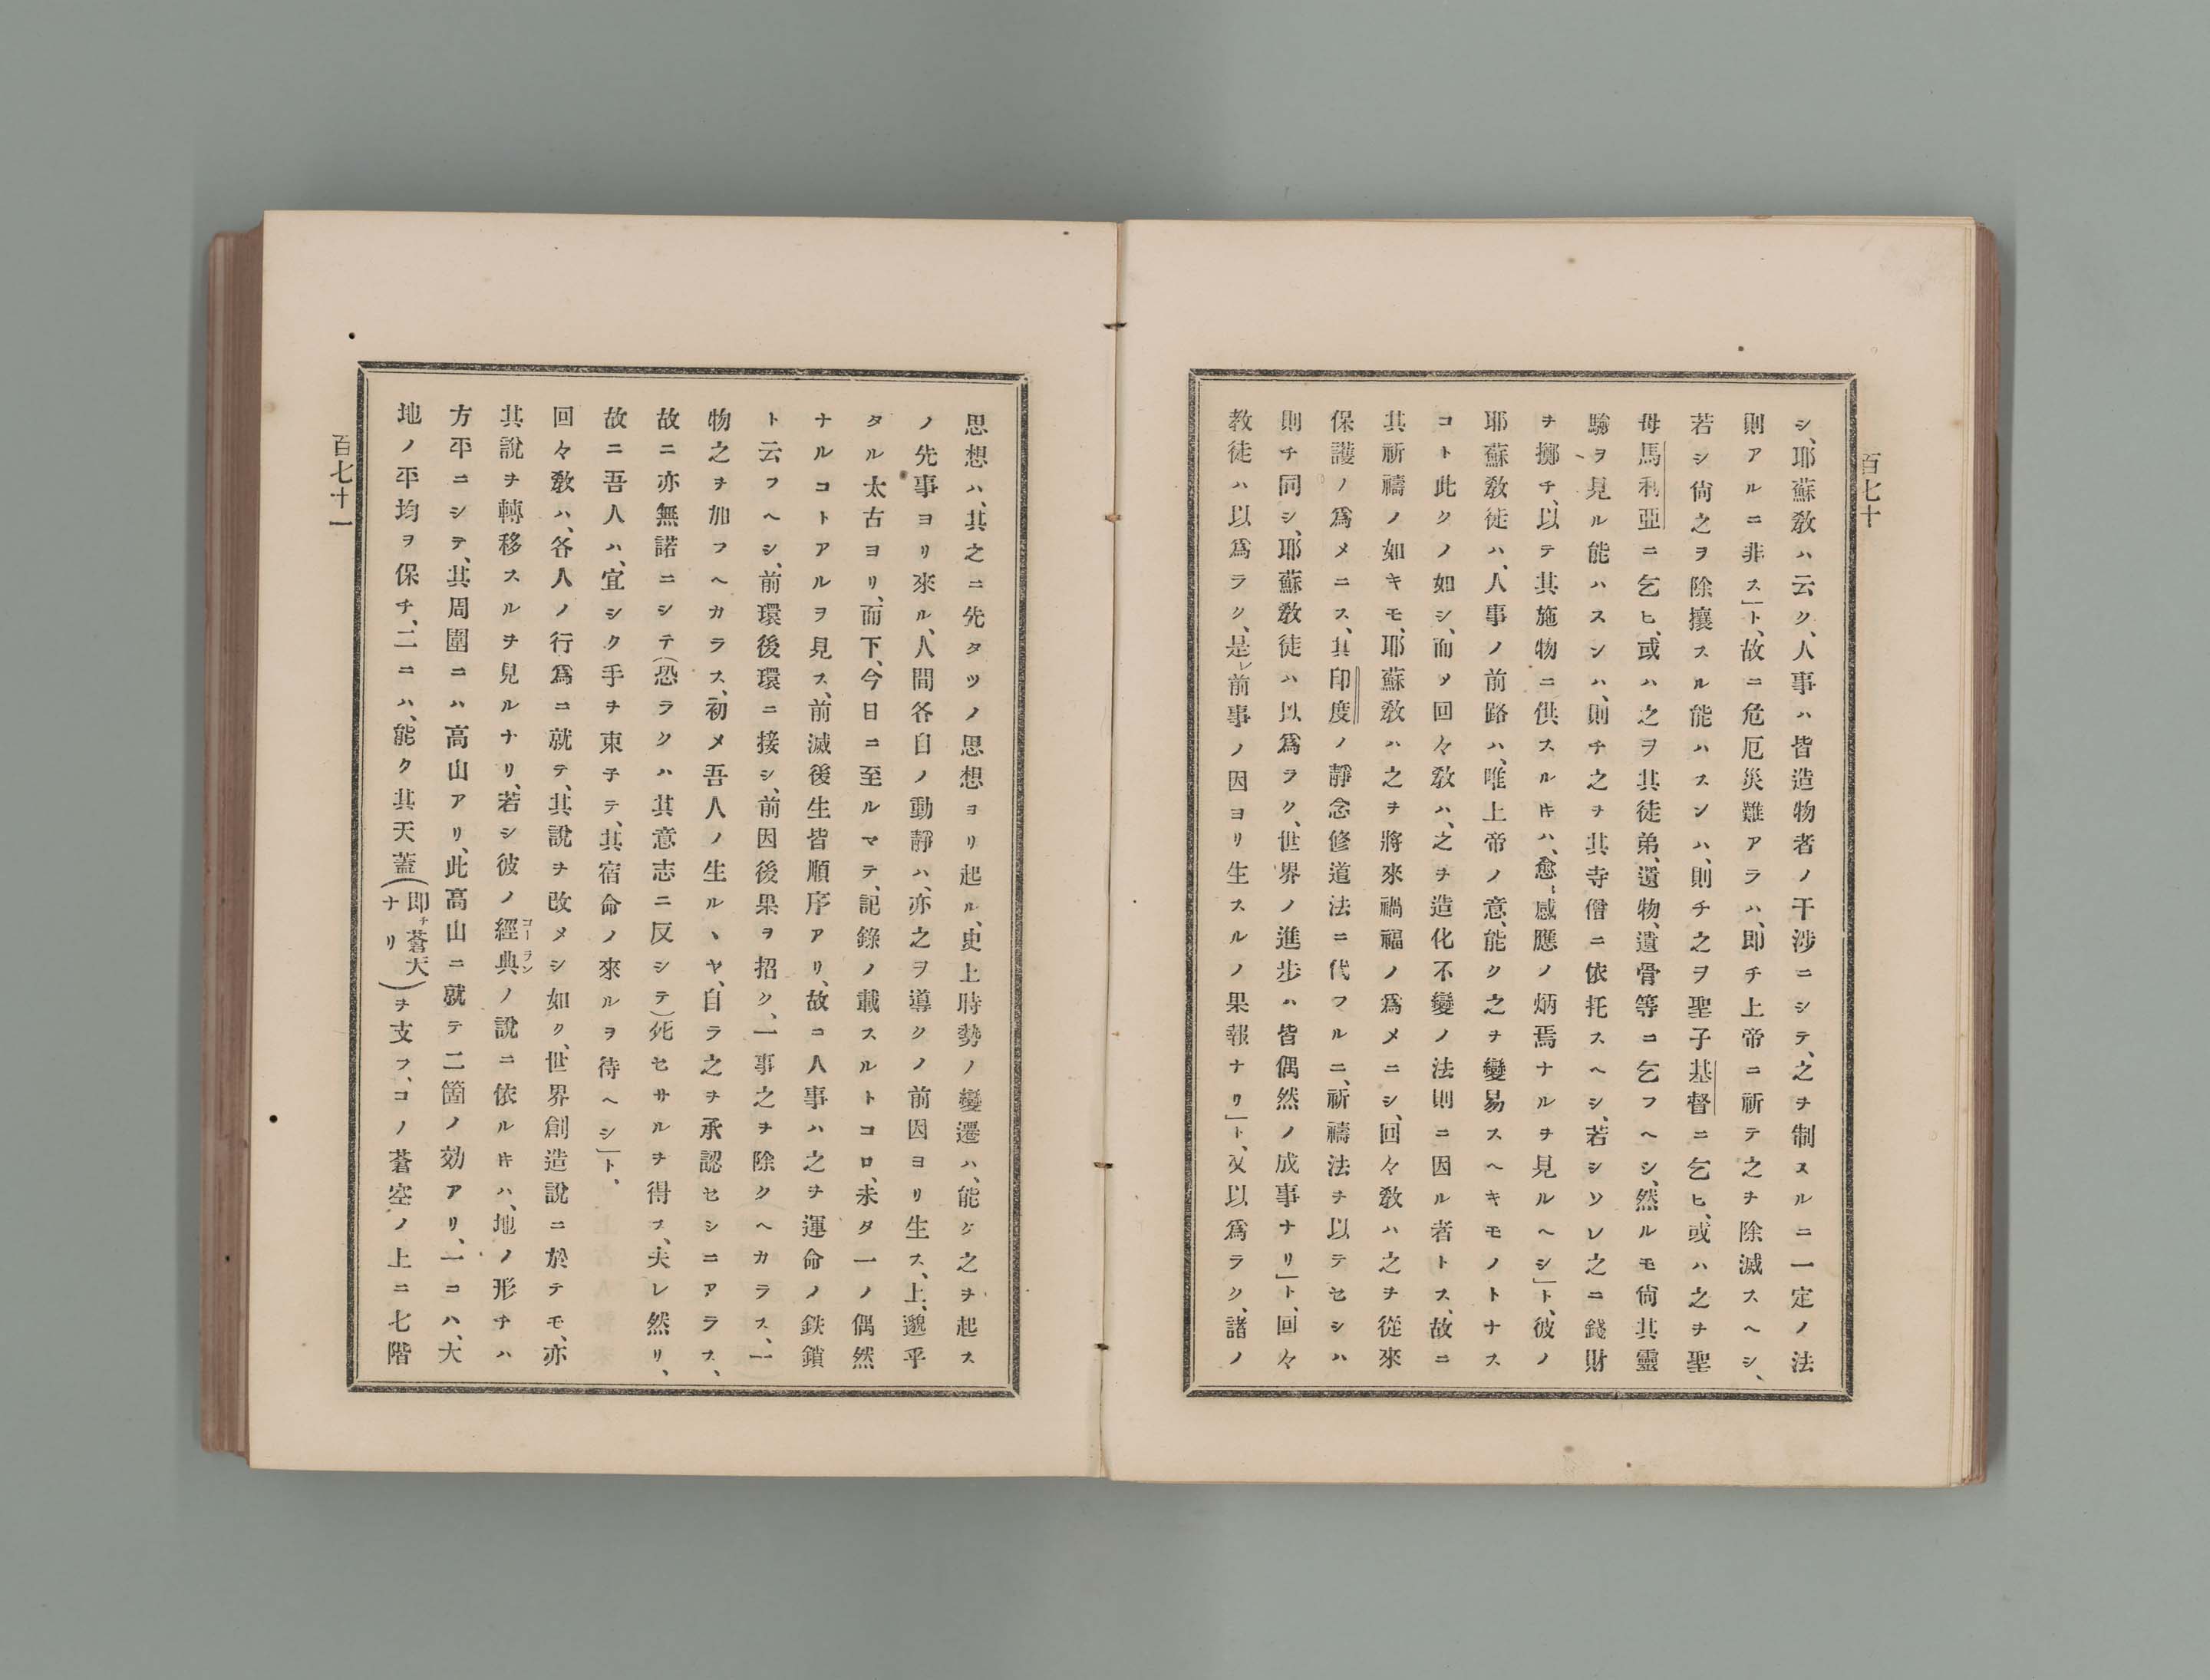 百七十
シ、耶蘇敎ハ云ク、人事ハ皆造物者ノ干渉ニシテ、之ヲ制スルニ一定ノ法
則アルニ非ス」ト、故ニ危厄災難アラハ、即チ上帝ニ祈テ之ヲ除滅スヘシ、
若シ尙之ヲ除攘スル能ハスンハ、則チ之ヲ聖子基督ニ乞ヒ、或ハ之ヲ聖
母馬利亞ニ乞ヒ、或ハ之ヲ其徒弟、遺物、遺骨等ニ乞フヘシ、然ルモ尙其靈
驗ヲ見ル能ハスシハ、則チ之ヲ其寺僧ニ依托スヘシ、若シソレ之ニ錢財
ヲ擲チ、以テ其施物ニ供スルキハ、愈感應ノ炳焉ナルヲ見ルヘシ」ト、彼ノ
耶蘇敎徒ハ、人事ノ前路ハ、唯上帝ノ意、能ク之ヲ變易スヘキモノトナス
コト此クノ如シ、而メ回々敎ハ、之ヲ造化不變ノ法則ニ因ル者トス、故ニ
其祈禱ノ如キモ、耶蘇敎ハ之ヲ將來禍福ノ爲メニシ、回々敎ハ之ヲ從來
保護ノ爲メニス、其印度ノ靜念修道法ニ代フルニ、祈禱法ヲ以テセシハ
則チ同シ、耶蘇敎徒ハ以爲ラク、世界ノ進歩ハ皆偶然ノ成事ナリ」ト、回々
敎徒ハ以爲ラク、是レ前事ノ因ヨリ生スルノ果報ナリ」ト、又以爲ラク、諸ノ
思想ハ、其之ニ先タツノ思想ヨリ起ル、史上時勢ノ變遷ハ、能ク之ヲ起ス
ノ先事ヨリ來ル、人間各自ノ動靜ハ、亦之ヲ導クノ前因ヨリ生ス、上、邈乎
タル太古ヨリ、而下、今日ニ至ルマテ、記錄ノ載スルトコロ、未タ一ノ偶然
ナルコトアルヲ見ス、前滅後生皆順序アリ、故ニ人事ハ之ヲ運命ノ鉄鎖
ト云フヘシ、前環後環ニ接シ、前因後果ヲ招ク、一事之ヲ除クヘカラス、一
物之ヲ加フヘカラス、初メ吾人ノ生ルヽヤ、自ラ之ヲ承認セシニアラス、
故ニ亦無諾ニシテ(恐ラクハ其意志ニ反シテ)死セサルヲ得ス、夫レ然リ、
故ニ吾人ハ、宜シク手ヲ束子テ、其宿命ノ來ルヲ待ヘシ」ト、
回々敎ハ、各人ノ行爲ニ就テ、其說ヲ改メシ如ク、世界創造說ニ於テモ、亦
其說ヲ轉移スルヲ見ルナリ、若シ彼ノ經典コーランノ說ニ依ルキハ、地ノ形チハ
方平ニシテ、其周圍ニハ高山アリ、此高山ニ就テ二箇ノ効アリ、一コハ、大
地ノ平均ヲ保チ、二ニハ、能ク其天蓋(即チ蒼天ナリ)ヲ支フ、コノ蒼空ノ上ニ七階
百七十一